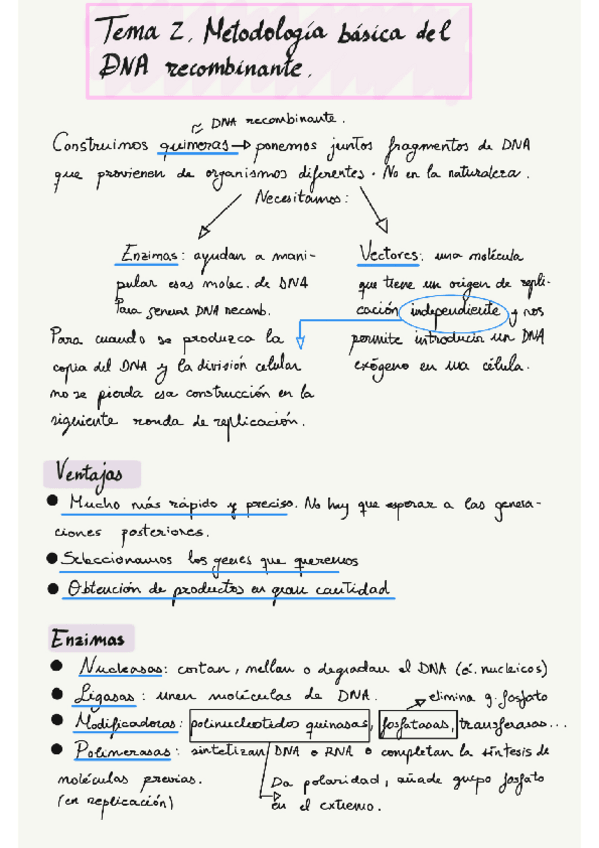 Tema 2. Metodología básica del
DNA recombinante.
≈ DNA recombinante.
Construimos quimeras → ponemos juntos fragmentos de DNA
que provienen de organismos diferentes. No en la naturaleza.
Necesitamos:
Enzimas: ayudan a mani-
pular esas molec. de DNA
Para generar DNA recomb.
Vectores: una molécula
que tiene un origen de repli-
cación independiente y nos
permite introducir un DNA
exógeno en una célula.
Para cuando se produzca la
copia del DNA y la división celular
no se pierda esa construcción en la
siguiente ronda de replicación.
Ventajas
● Mucho más rápido y preciso. No hay que esperar a las genera-
ciones posteriores.
● Seleccionamos los genes que queremos
● Obtención de productos en gran cantidad
Enzimas
● Nucleasas: cortan, mellan o degradan el DNA (ác. nucleicos)
● Ligasas: unen moléculas de DNA.
elimina g. fosfato
● Modificadoras: polinucleotidos quinasas, fosfatasas, transferasas...
● Polimerasas: sintetizan DNA o RNA o completan la síntesis de
moléculas previas.
(en replicación)
Da polaridad, añade grupo fosfato
en el extremo.